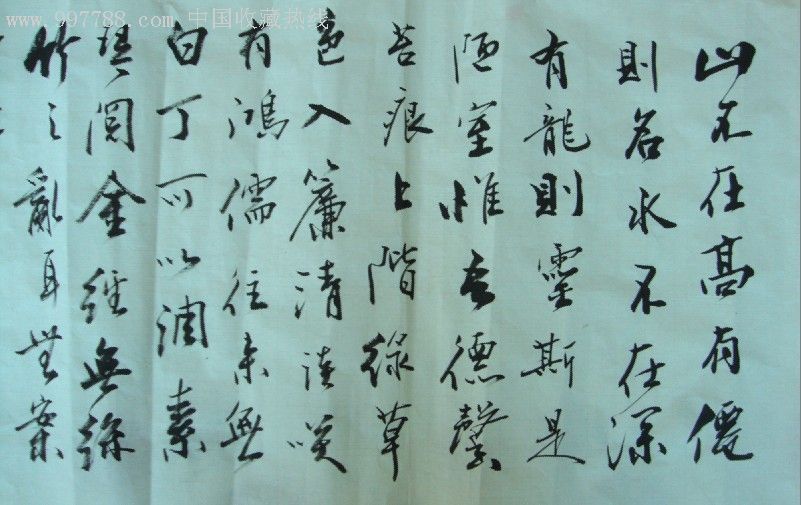 www.997788.com 中国收藏热线
山不在高有僊
則名水不在深
有龍則靈斯是
陋室惟吾德馨
苔痕上階綠草
色入簾清談咲
有鴻儒往來無
白丁可以調素
琴閱金經無絲
竹之亂耳無案